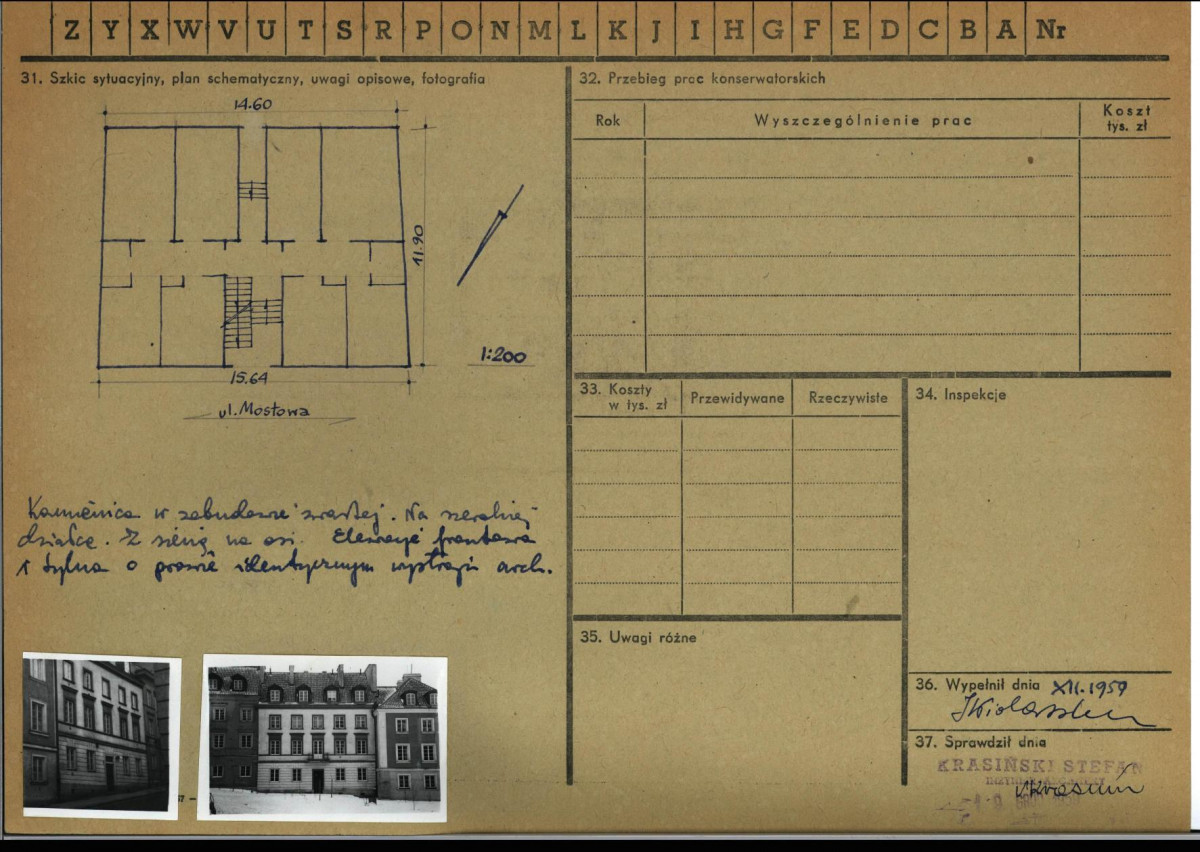 Z Y X W V U T S R P O N M L K J I H G F E D C B A Nr
31. Szkic sytuacyjny, plan schematyczny, uwagi opisowe, fotografia
14.60
11.90
1:200
15.64
ul. Mostowa
Kamienica w zabudowie zwartej. Na szerokiej
działce. Z sienią na osi. Elewacje frontowa
i tylna o prawie identycznym wystroju arch.
32. Przebieg prac konserwatorskich
Rok
Wyszczególnienie prac
Koszt
tys. zł
33. Koszty
w tys. zł
Przewidywane
Rzeczywiste
34. Inspekcje
35. Uwagi różne
36. Wypełnił dnia XII.1959
37. Sprawdził dnia
KRASIŃSKI STEFAN